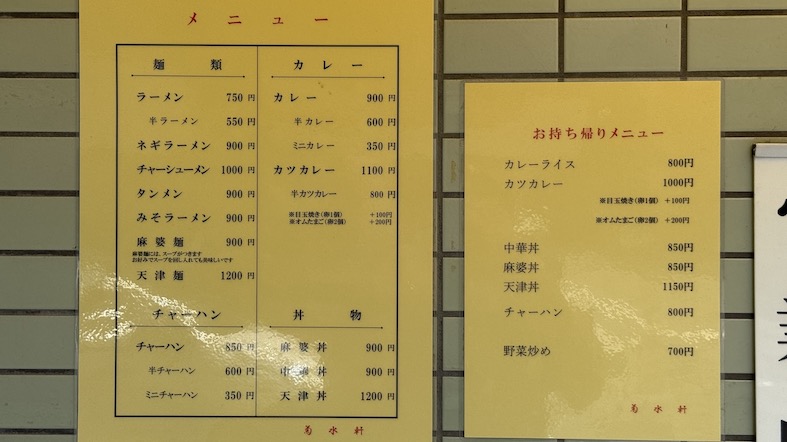 メニュー
麺類
ラーメン 750円
半ラーメン 550円
ネギラーメン 900円
チャーシューメン 1000円
タンメン 900円
みそラーメン 900円
麻婆麺 900円
麻婆麺には、スープがつきます
お好みでスープを回し入れても美味しいです
天津麺 1200円
カレー
カレー 900円
半カレー 600円
ミニカレー 350円
カツカレー 1100円
半カツカレー 800円
※目玉焼き(卵1個) +100円
※オムたまご(卵2個) +200円
チャーハン
チャーハン 850円
半チャーハン 600円
ミニチャーハン 350円
丼物
麻婆丼 900円
中華丼 900円
天津丼 1200円
菊水軒
お持ち帰りメニュー
カレーライス 800円
カツカレー 1000円
※目玉焼き(卵1個) +100円
※オムたまご(卵2個) +200円
中華丼 850円
麻婆丼 850円
天津丼 1150円
チャーハン 800円
野菜炒め 700円
菊水軒